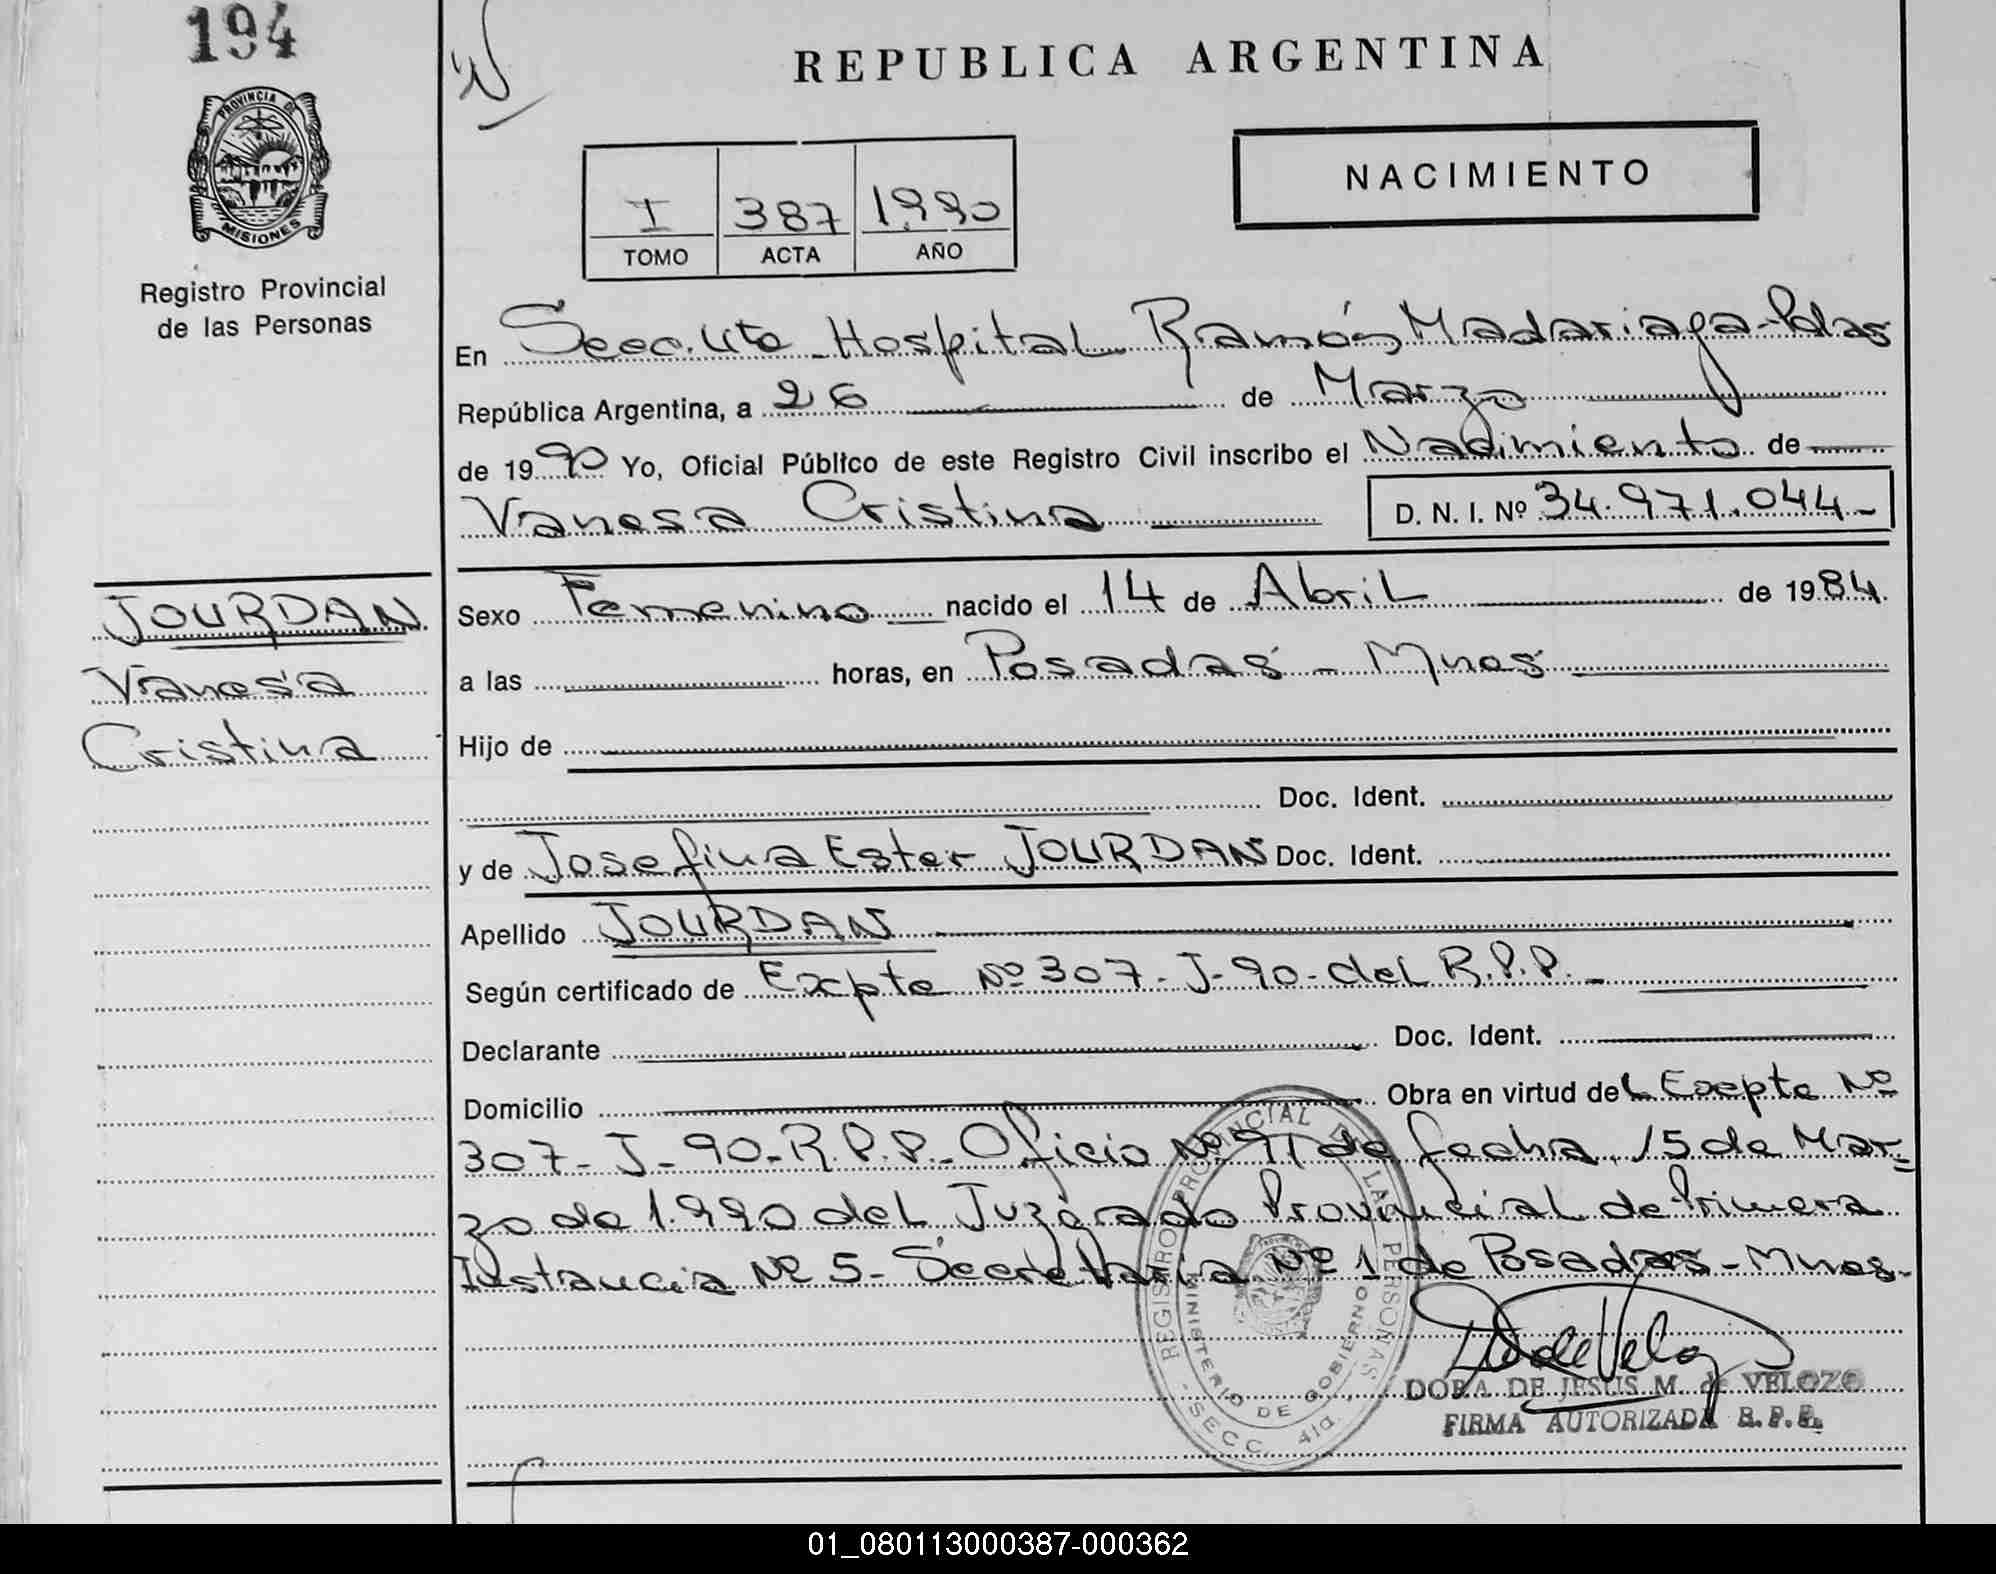 194
REPUBLICA ARGENTINA
PROVINCIA DE
MISIONES
Registro Provincial
de las Personas
NACIMIENTO
I 387 1.990
TOMO ACTA AÑO
En Secc. 4ta - Hospital Ramón Madariaga - Pdas
República Argentina, a 26 de Marzo
de 1990 Yo, Oficial Público de este Registro Civil inscribo el Nacimiento de
Vanesa Cristina D. N. I. Nº 34.971.044-
JOURDAN
Vanesa
Cristina
Sexo Femenino nacido el 14 de Abril de 1984
a las horas, en Posadas - Mnes
Hijo de
Doc. Ident.
y de Josefina Ester JOURDAN Doc. Ident.
Apellido JOURDAN
Según certificado de Expte Nº 307-J-90-del R.P.P.-
Declarante Doc. Ident.
Domicilio Obra en virtud del Exepte Nº
307-J-90-R.P.P.- Oficio Nº 91 de fecha 15 de Mar-
zo de 1.990 del Juzgado Provincial de Primera
Instancia Nº 5- Secretaria Nº 1 de Posadas - Mnes-
REGISTRO PROVINCIAL DE LAS PERSONAS
MINISTERIO DE GOBIERNO
- SECC. 4ta. -
DORA DE JESUS M. de VELOZO
FIRMA AUTORIZADA R.P.P.
01_080113000387-000362